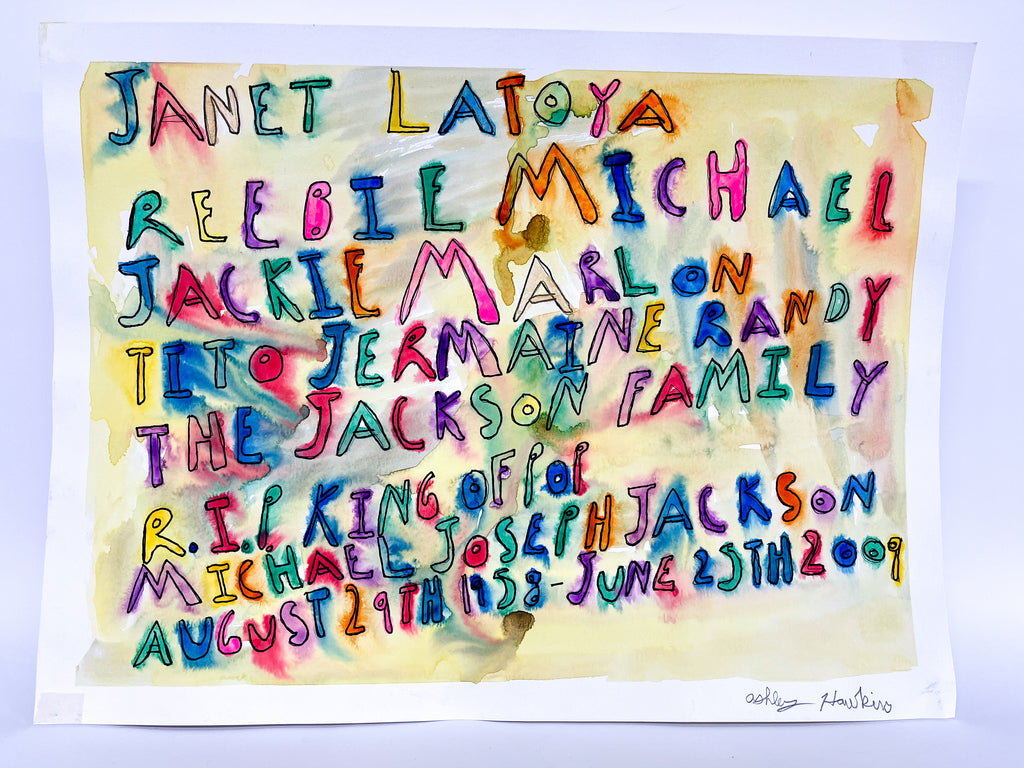 JANET LATOYA
REEBIE MICHAEL
JACKIE MARLON
TITO JERMAINE RANDY
THE JACKSON FAMILY
R.I.P KING OF POP
MICHAEL JOSEPH JACKSON
AUGUST 29TH 1958-JUNE 25TH 2009
ashley Hawkins